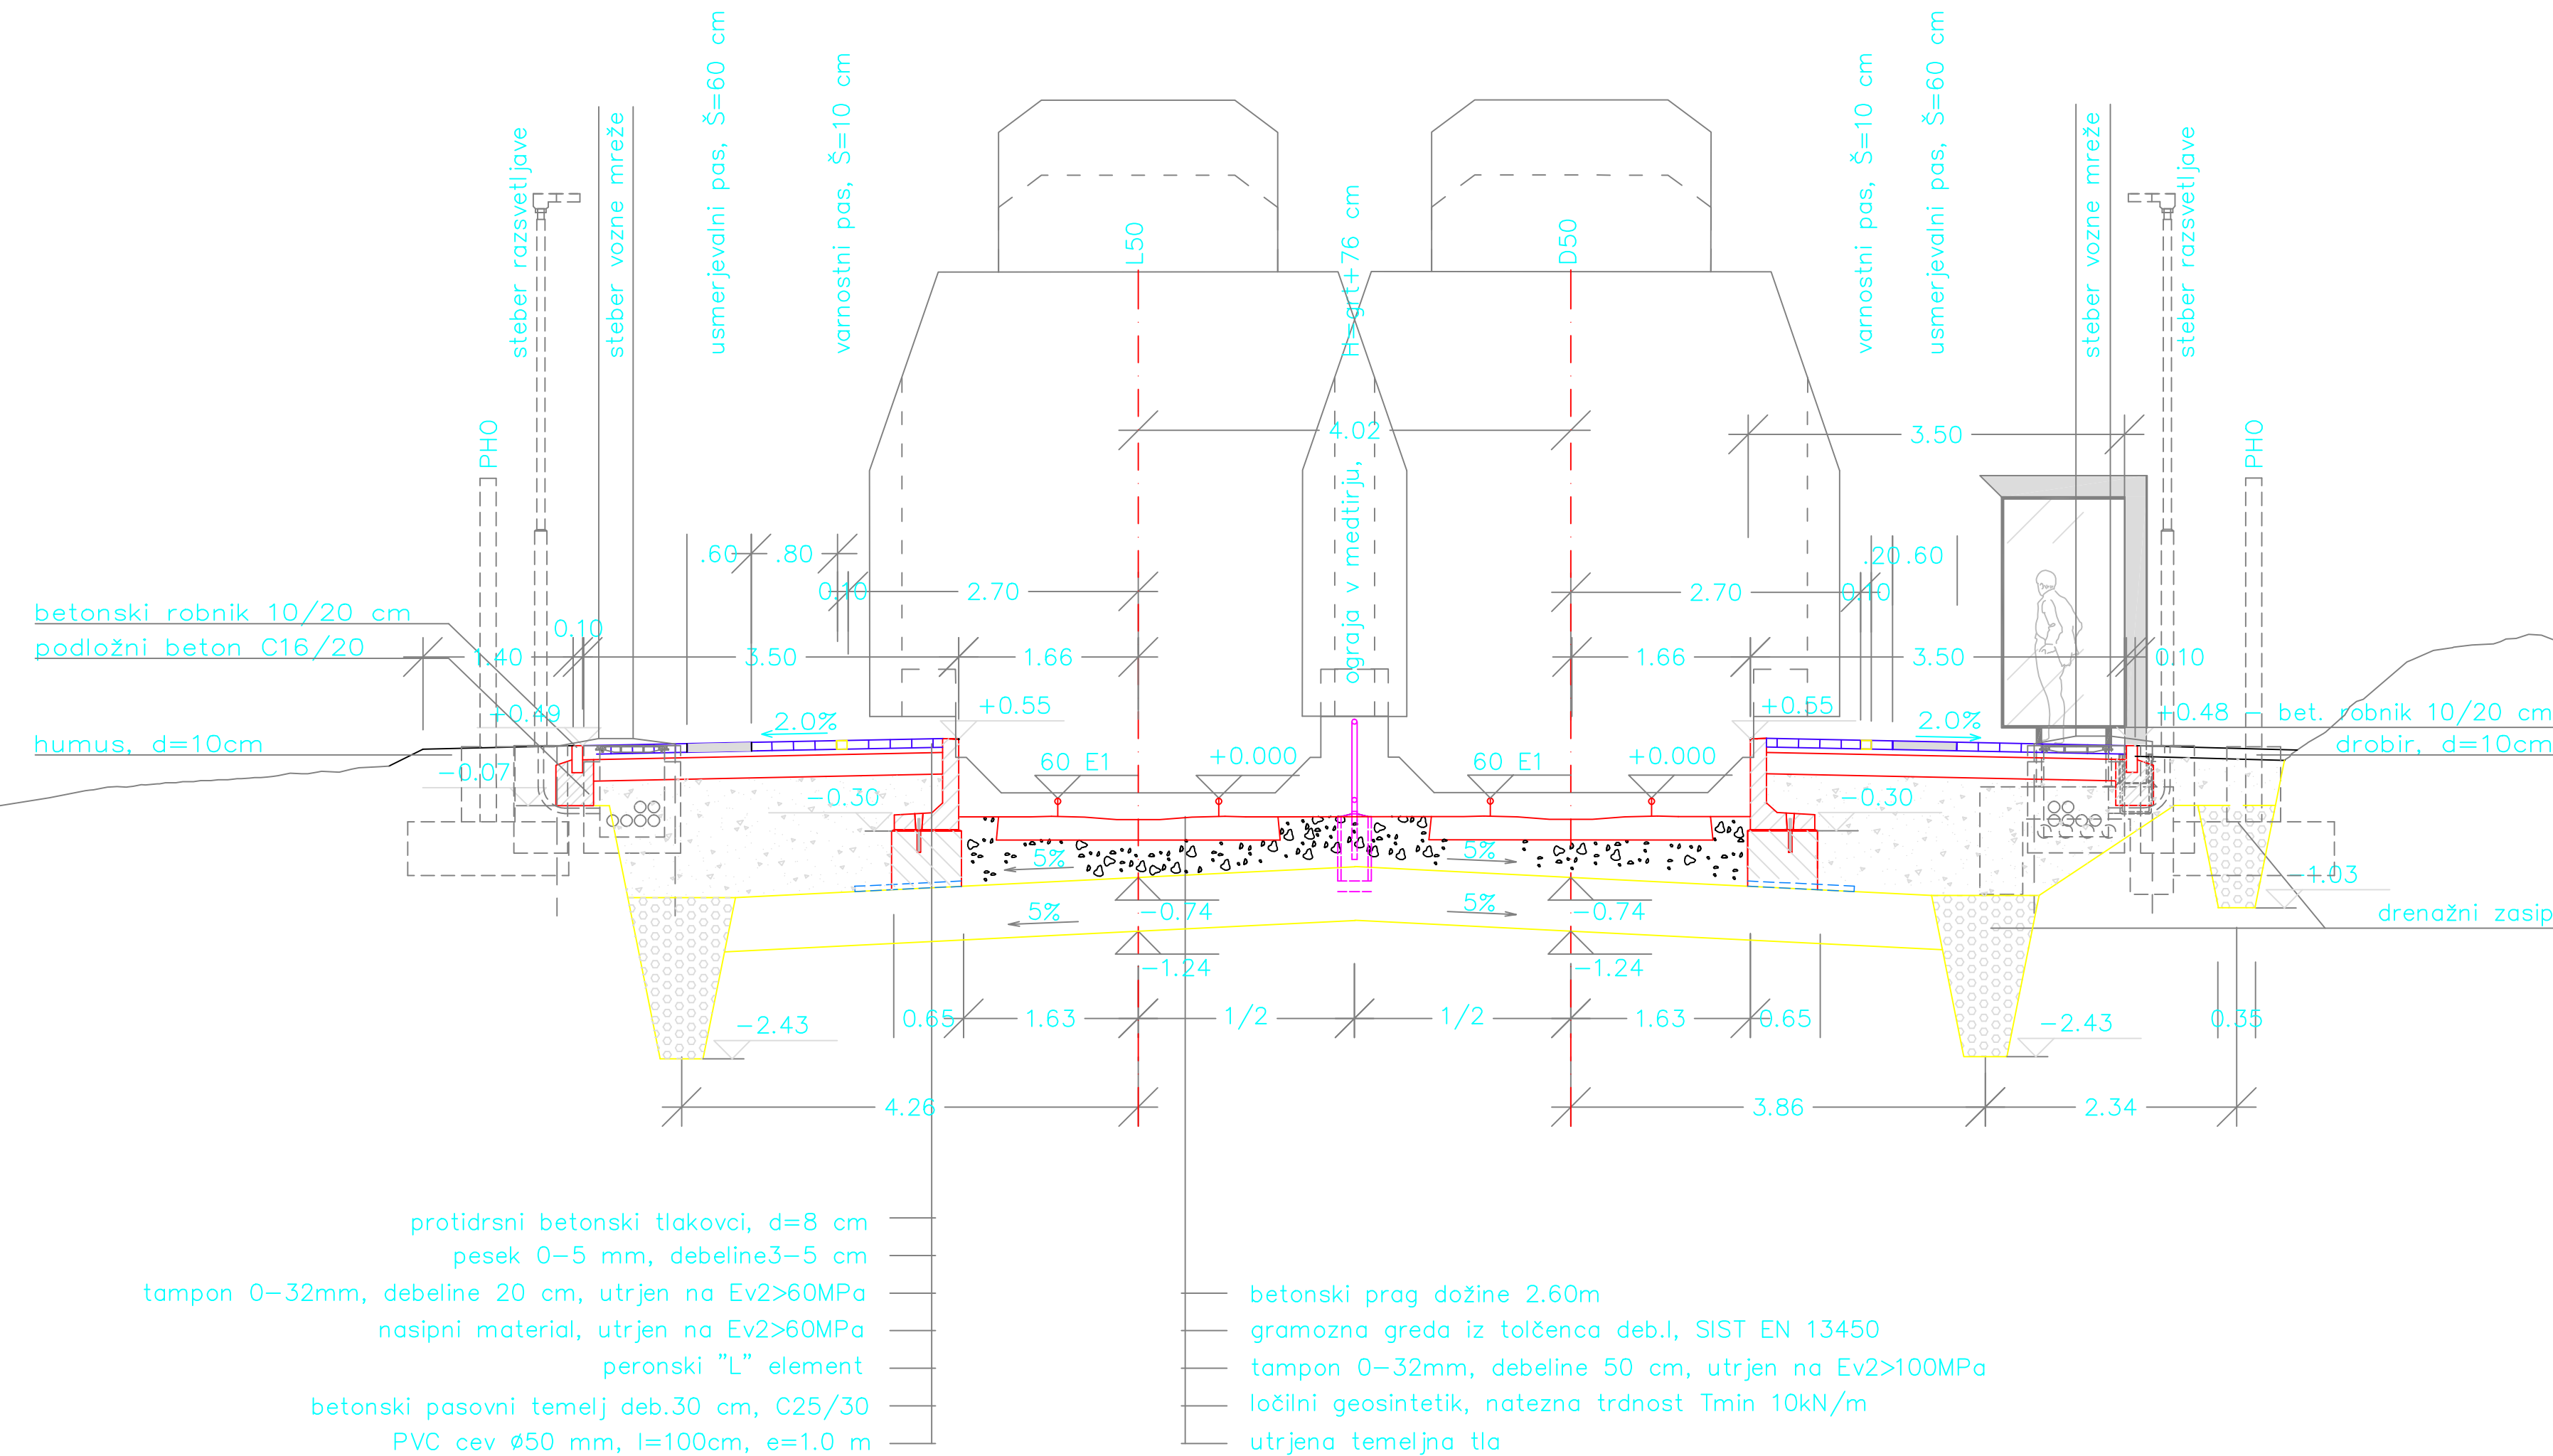 steber razsvetljave
steber vozne mreže
usmerjevalni pas, Š=60 cm
varnostni pas, Š=10 cm
L50
ograja v medtirju, H=grt+76 cm
D50
varnostni pas, Š=10 cm
usmerjevalni pas, Š=60 cm
steber vozne mreže
steber razsvetljave
PHO
PHO
4.02
3.50
.60
.80
0.10
2.70
2.70
0.10
.20
.60
betonski robnik 10/20 cm
podložni beton C16/20
humus, d=10cm
0.10
1.40
3.50
1.66
1.66
3.50
0.10
+0.49
2.0%
+0.55
+0.55
2.0%
+0.48
bet. robnik 10/20 cm
drobir, d=10cm
-0.07
-0.30
60 E1
+0.000
60 E1
+0.000
-0.30
5%
5%
-1.03
5%
-0.74
5%
-0.74
drenažni zasip
-1.24
-1.24
-2.43
0.65
1.63
1/2
1/2
1.63
0.65
-2.43
0.35
4.26
3.86
2.34
protidrsni betonski tlakovci, d=8 cm
pesek 0-5 mm, debeline3-5 cm
tampon 0-32mm, debeline 20 cm, utrjen na Ev2>60MPa
nasipni material, utrjen na Ev2>60MPa
peronski "L" element
betonski pasovni temelj deb.30 cm, C25/30
PVC cev Ø50 mm, l=100cm, e=1.0 m
betonski prag dožine 2.60m
gramozna greda iz tolčenca deb.I, SIST EN 13450
tampon 0-32mm, debeline 50 cm, utrjen na Ev2>100MPa
ločilni geosintetik, natezna trdnost Tmin 10kN/m
utrjena temeljna tla